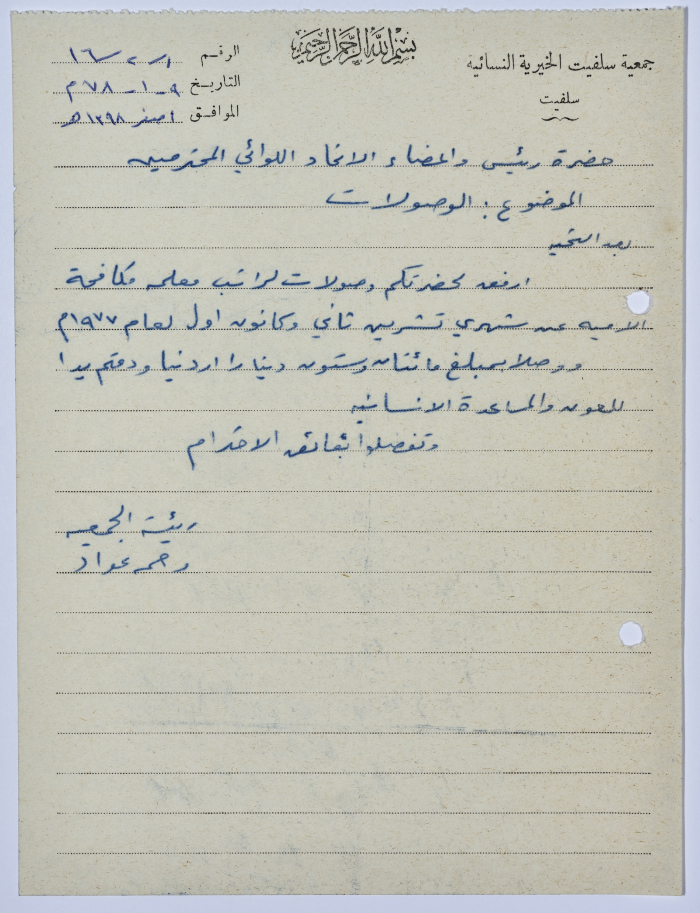 بسم الله الرحمن الرحيم
جمعية سلفيت الخيرية النسائية
سلفيت
الرقم ١/٢/١٦
التاريخ ٩-١-٧٨م
الموافق ١ صفر ١٣٩٨ هـ
حضرة رئيس واعضاء الاتحاد اللوائي المحترمين
الموضوع : الوصولات
بعد التحيه
ارفق لحضرتكم وصولات لراتب معلمه مكافحة
الاميه عن شهري تشرين ثاني وكانون اول لعام ١٩٧٧م
ووصلا بمبلغ مائتان وستون دينارا اردنيا ودمتم يدا
للعون والمساعدة الانسانيه
وتفضلوا بفائق الاحترام
رئيسة الجمعيه
عواد